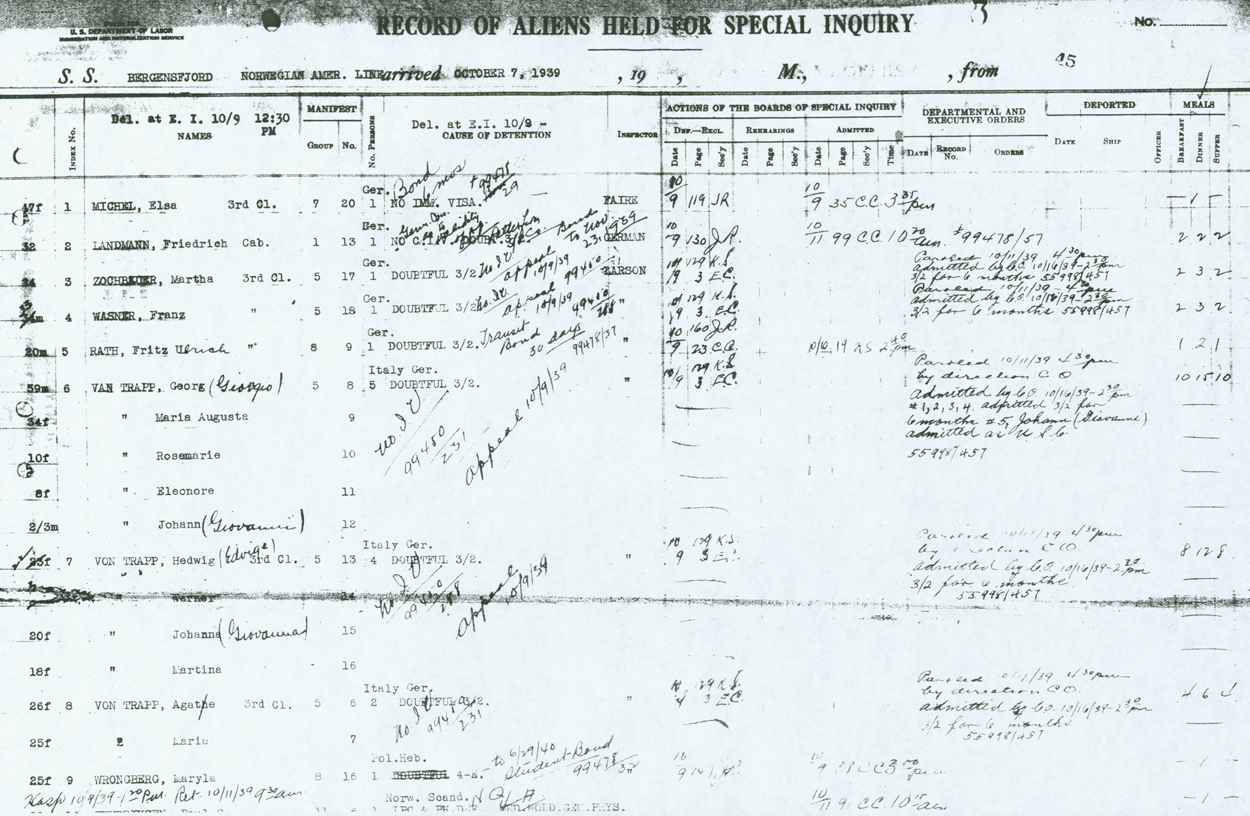 U. S. DEPARTMENT OF LABOR
IMMIGRATION AND NATURALIZATION SERVICE
RECORD OF ALIENS HELD FOR SPECIAL INQUIRY
3
No.
S. S. BERGENSFJORD NORWEGIAN AMER. LINE arrived OCTOBER 7, 1939 , 19 , M., , from
45
Index No.
Del. at E.I. 10/9 12:30 PM
NAMES
MANIFEST
GROUP No.
No. PERSONS
Del. at E.I. 10/9 -
CAUSE OF DETENTION
INSPECTOR
ACTIONS OF THE BOARDS OF SPECIAL INQUIRY
DEF.—EXCL. REHEARINGS ADMITTED
Date Page Sec'y Date Page Sec'y Date Page Sec'y Time
DEPARTMENTAL AND EXECUTIVE ORDERS
DATE RECORD No. ORDERS
DEPORTED
DATE SHIP OFFICER
MEALS
BREAKFAST DINNER SUPPER
47f 1 MICHEL, Elsa 3rd Cl. 7 20 Ger. 1 NO IMM. VISA. Bond 6 mos 99475/29 FAIRE 10/9 119 JR 10/9 35 CC 3 35 pm — 1 —
32 2 LANDMANN, Friedrich Cab. 1 13 Ger. 1 GERMAN 10/9 130 J.R. 10/11 99 C.C. 10 20 am. #99478/57 2 2 2
3 ZOCHBAUER, Martha 3rd Cl. 5 17 Ger. 1 DOUBTFUL 3/2. No I.V. appeal 10/9/39 99450 LARSON 10/9 129 K.S. 3 E.C. Paroled 10/11/39 4 30 pm
admitted by C.O. 10/16/39-2 30 pm
3/2 for 6 months 55998/457 2 3 2
4 WASNER, Franz " 5 18 Ger. 1 DOUBTFUL 3/2. No. I.V. appeal 10/9/39 99450 " 10/9 129 K.S. 3 E.C. Paroled 10/11/39 - 4 30 pm
admitted by C.O. 10/16/39-2 30 pm
3/2 for 6 months 55998/457 2 3 2
20m 5 RATH, Fritz Ulrich " 8 9 Ger. 1 DOUBTFUL 3/2. Transit Bond 30 days 99478/37 " 10/9 160 J.R. 23 C.C. 10/10 19 KS 2 40 pm 1 2 1
59m 6 VAN TRAPP, Georg (Giorgio) 5 8 Italy Ger. 5 DOUBTFUL 3/2. " 10/9 129 K.S. 3 E.C. Paroled 10/11/39 4 30 pm
by direction C O 10 15 10
admitted by C.O. 10/16/39-2 30 pm
34f " Maria Augusta 9 No I V 99450/231 appeal 10/9/39 #1, 2, 3, 4. admitted 3/2 for
6 months #5, Johann (Giovanni)
admitted as U S C
10f " Rosemarie 10 55998/457
8f " Eleonore 11
2/3m " Johann (Giovanni) 12
23f 7 VON TRAPP, Hedwig (Edvige) 3rd Cl. 5 13 Italy Ger. 4 DOUBTFUL 3/2. " 10/9 129 K.S. 3 E.C. Paroled 10/11/39 4 30 pm
by direction C O 8 12 8
admitted by C.O. 10/16/39-2 30 pm
3/2 for 6 months
55998/457
" Werner 14 No I V appeal 10/9/39
20f " Johanna (Giovanna) 15
18f " Martina 16
26f 8 VON TRAPP, Agathe 3rd Cl. 5 6 Italy Ger. 2 DOUBTFUL 3/2. " 129 K.S. 3 E.C. Paroled 10/11/39 4 30 pm
by direction C O. 4 6 4
admitted by C.O. 10/16/39-2 30 pm
3/2 for 6 months
55998/457
25f " Maria 7 No I V 231
25f 9 WRONGBERG, Maryla 8 16 Pol.Heb. 1 DOUBTFUL to 6/29/40 Student-Bond 99478 10/9 10/9 CC 3 pm — 1 —
Hosp 10/9/39-1 20 Pm. Ret. 10/11/39 9 30 am
Norw. Scand. 10/11 91 CC. 10 15 am — 1 —